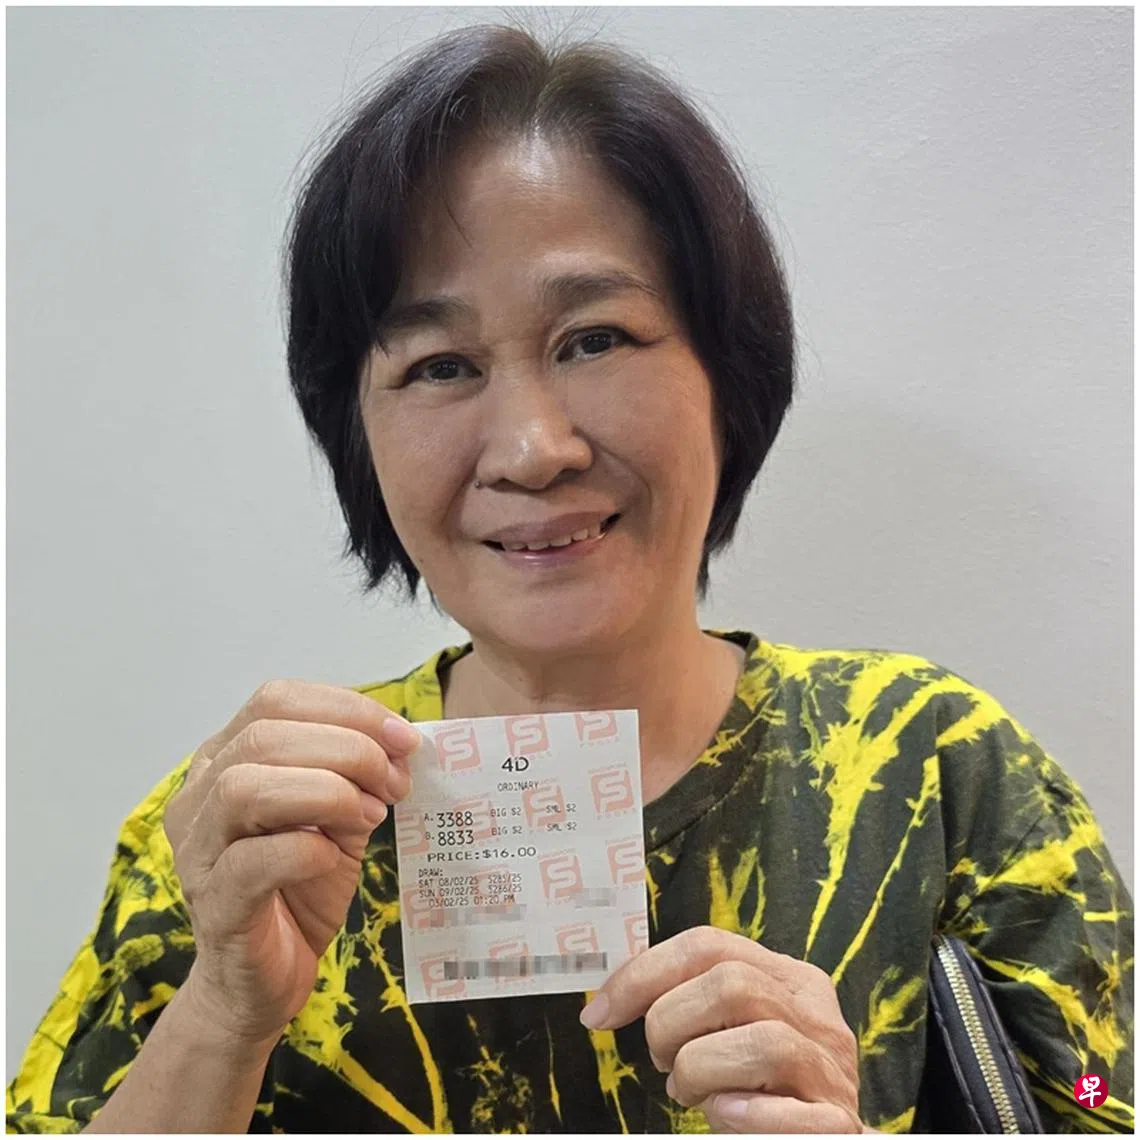 4D
ORDINARY
A. 3388 BIG $2 SML $2
B. 8833 BIG $2 SML $2
PRICE:$16.00
DRAW:
SAT 08/02/25 5285/25
SUN 09/02/25 5286/25
03/02/25 01:20 PM
早